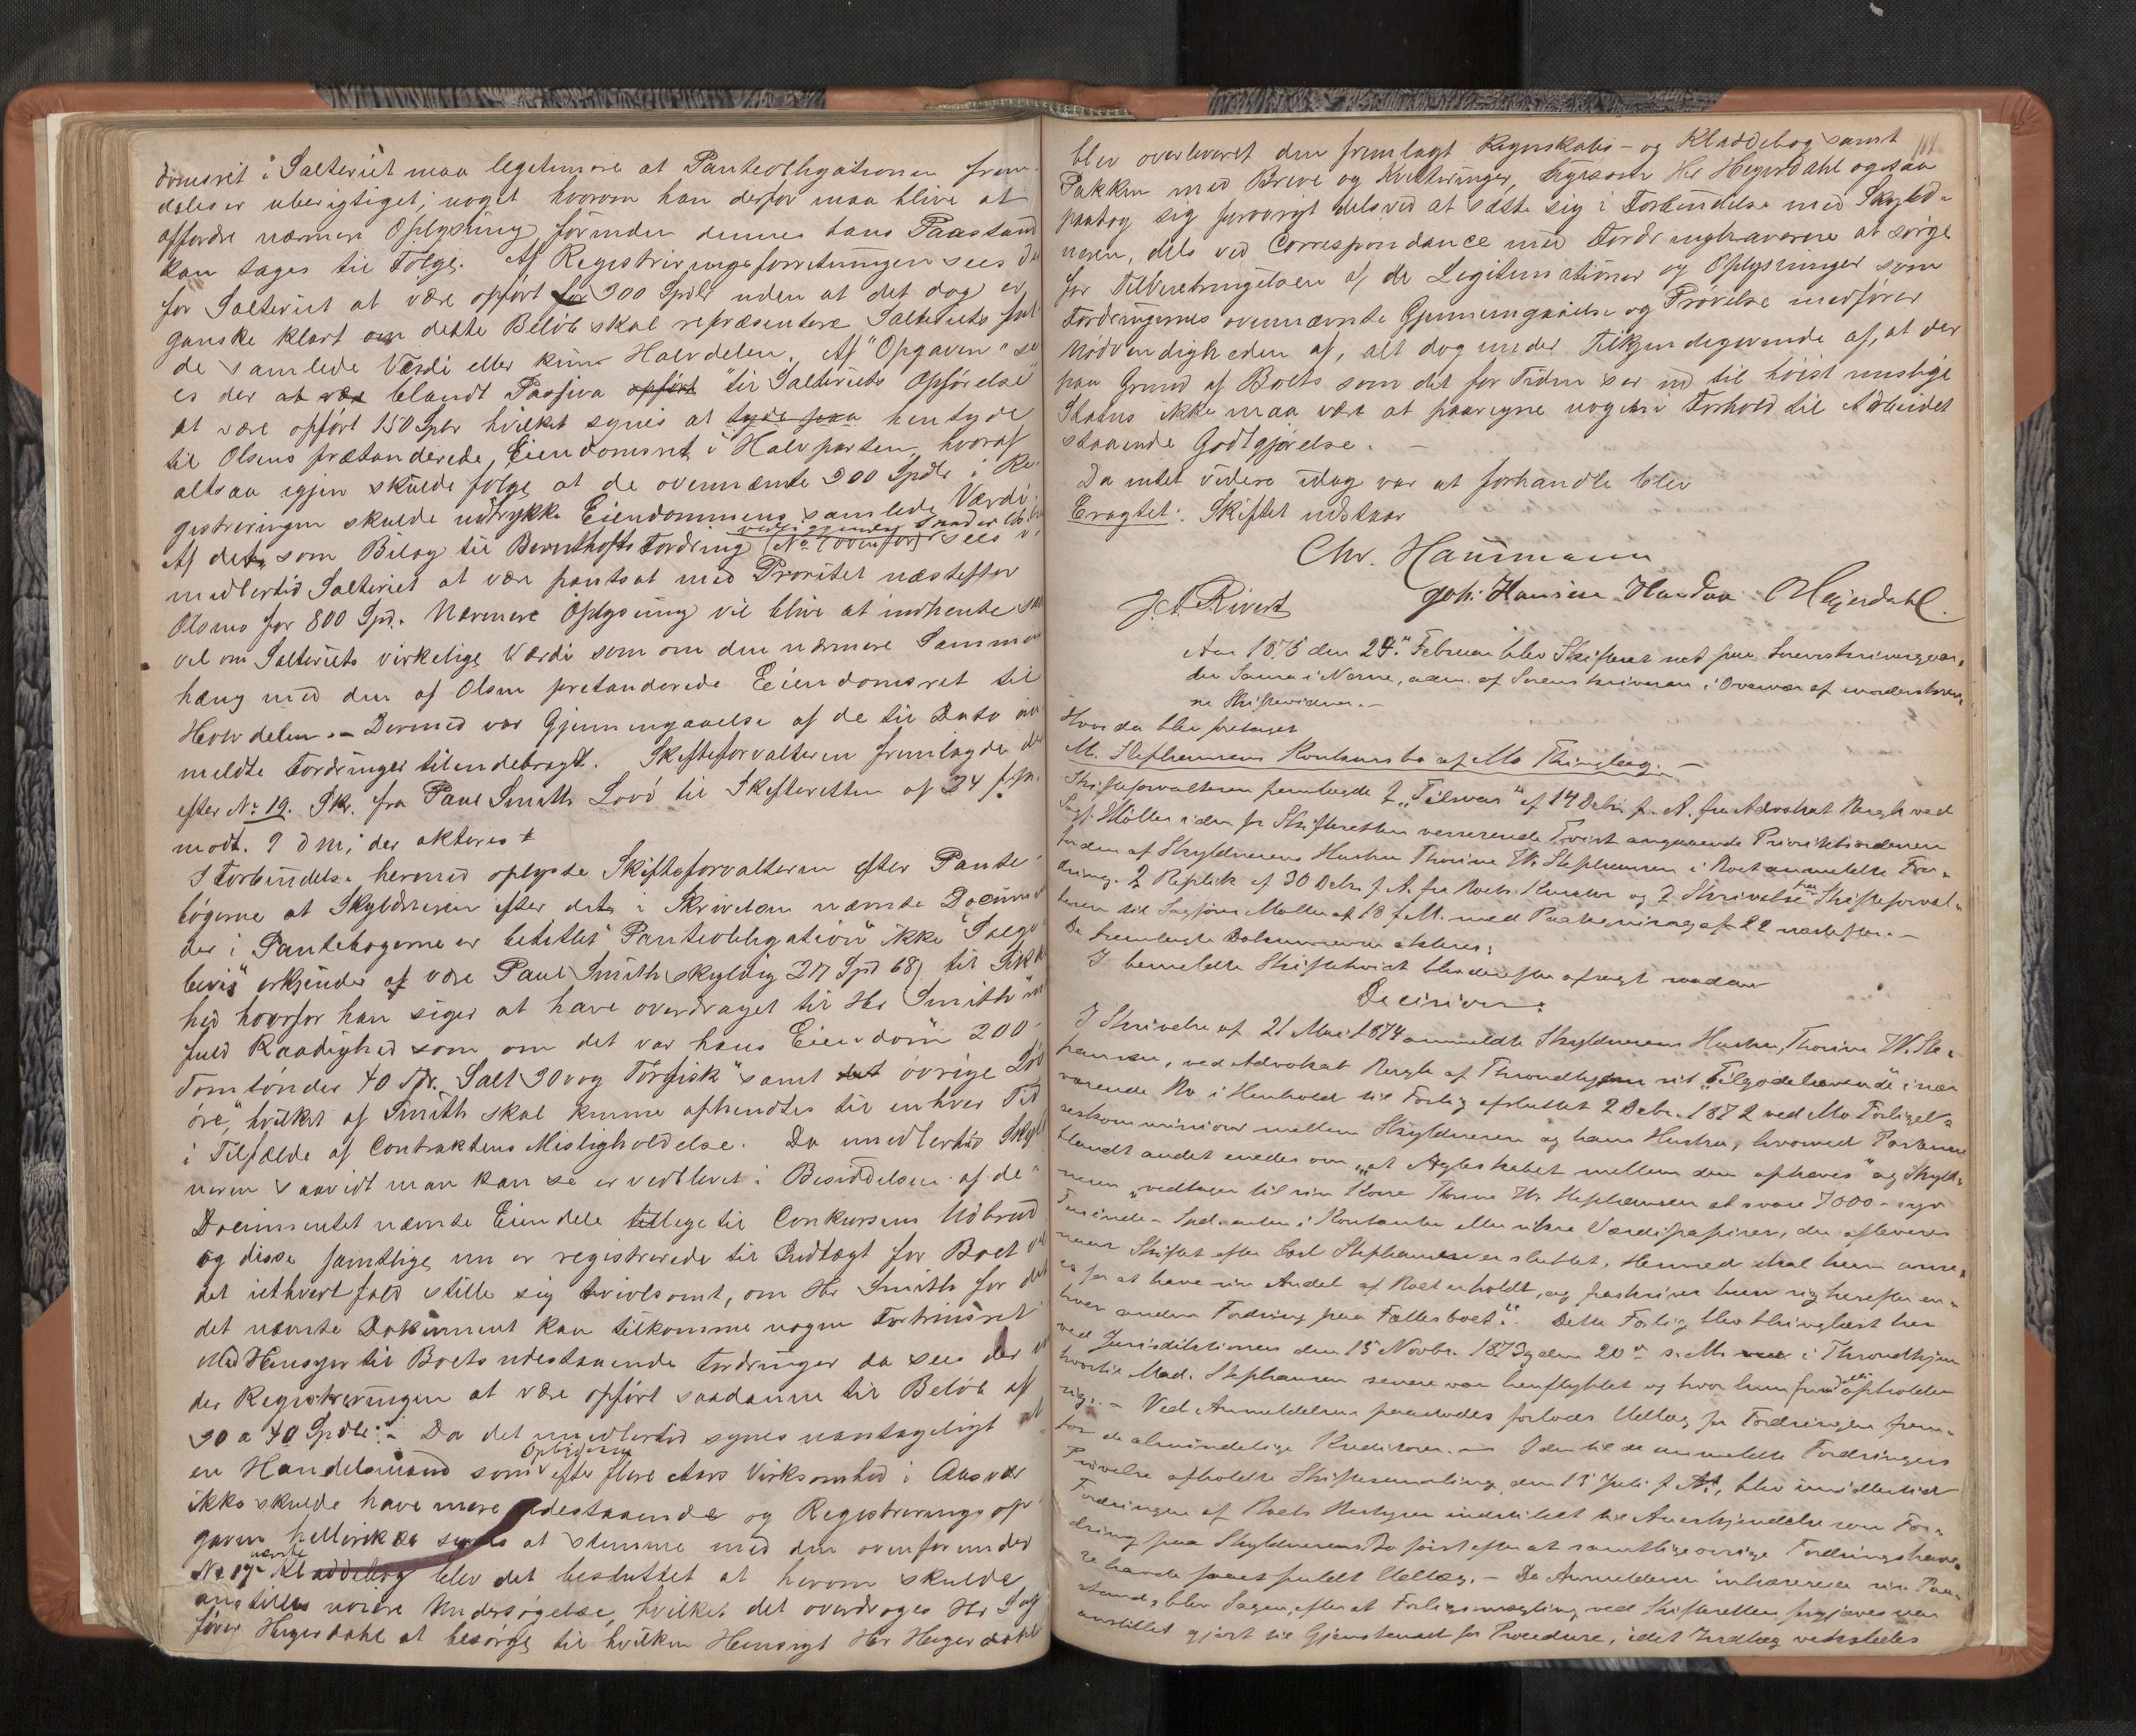 domsret i Salteriet maa legitimere at Panteobligationen frem-
deles er uberigtiget, noget hvorom han derfor maa blive at
affordre nærmere Oplysning, förinden dennes hans Paastand
kan tages til Fölge. Af Registreringsforretningen sees der
for Salteriet at være opfört for 300 Spdlr uden at det dog er
ganske klart om dette Belöb skal repræsentere Salteriets ful-
de samlede Værdi eller kun Halvdelen. Af "Opgaven" se
es der at være blandt Passiva opfört "til Salteriets Opförelse"
at være opfört 150 Spdlr hvilket synes at tyde paa hentyde
til Olsens prætenderede Eiendomsret i Halvparten, hvoraf
altsaa igjen skulde fölge at de ovennævnte 300 Spdlr i Re-
gistreringen skulde udtrykke Eiendommens samlede Værdi.
Af det som Bilag til Berenthofts Fordring (No 7 ovenfor) sees
imidlertid Salteriet at være pantsat med Prioritet næstefter
Olsens for 800 Spd. Nærmere Oplysning vil blive at indhente saa
vel om Salteriets virkelige Værdi som om den nærmere Sammen
hæng med den af Olsen pretenderede Eiendomsret til
Halvdelen. – Dermed var Gjennemgaaelse af de til Dato an
meldte Fordringer tilendebragt. Skifteforvalteren fremlagde der
efter No 19. Skr. fra Paul Smith Lovö til Skifteretten af 24 f.M.
modt. 9 d M; der akteres
I Forbindelse hermed oplyste Skifteforvalteren efter Pante-
bögerne at Skyldneren efter det i Skrivelsen nævnte Document
der i Pantebogerne er betitlet "Panteobligation" ikke "Salgs
bevis" erkjender at være Paul Smith skyldig 217 Spd 68 til Sikker
hed hvorfor han siger at have overdraget til Hr Smith "
fuld Raadighed som om det var hans Eiendom" 200
Tomtönder 40 Tdr. Salt 30 vog Törfisk "samt det övrige Lös
öre", hvilket af Smith skal kunne afhendtes til enhver Tid
i Tilfælde af Contraktens Misligholdelse. Da imidlertid Skyld
neren saavidt man kan se er vedblevet i Besiddelsen af de i
Documentet nævnte Eiendele tillige til Conkursens Udbrud
og disse samtlige nu er registrerede til Indtægt for Boet vil
det iethvertfald stille sig tvivlsomt, om Hr Smith for det
det nævnte Dokument kan tilkomme nogen Fortrinsret
Med Hensyn til Boets udestaaende Fordringer da sees der
der Registreringen at være opfört saadanne til Belöb af
30 a 40 Spdlr: – Da det imidlertid synes uantageligt at
en Handelsmand som Opbyderen efter flere Aars Virksomhed i
ikke skulde have mere udestaaende og Registreringsop
gaven hellerikke synes at stemme med den ovenfor under
No 17 nævnte Kladdebog blev det besluttet at herom skulde
anstilles nöiere Undersögelse, hvilket det overdroges Hr Sag
förer Heyerdahl at besörge til hvilken Hensigt Hr Heyerdahl
blev overleveret den fremlagt Regnskabs- og Kladdebog samt
Pakken med Breve og Kvitteringer, ligesom Hr Heyerdahl ogsaa
paatog sig forövrigt dels ved at sætte sig i Forbindelse med Skyld-
neren, dels ved Correspondance med Fordringshaverne at sörge
for Tilveiebringelsen af de Legitimationer og Oplysninger som
Fordringernes ovennævnte Gjennemgaaelse og Prövelse medförer
Nödvendigheden af, alt dog under Tilkjendegivende af, at der
paa Grund af Boets som det for Tiden ser ud til höist usle
Status ikke maa være at paaregne nogen i Forhold til Arbeidet
staaende Godtgjörelse. –
Da intet videre idag var at forhandle blev
Eragtet: Skiftet udstaar
Chr. Hansmann
J. A. Rivert Joh: Hansen Handaa O Heyerdahl.
Aar 1875 den 24de Februar blev Skifteret sat paa Sorenskrivergaar-
den Sauna i Nærne, adm. af Sorenskriveren i Overvær af understkrev-
ne Skiftevidner. –
Hvor da blev foretaget
M. Stephansens Konkursbo af Mo Thinglag. –
Skifteforvalteren fremlagde 1, "Tilsvar" af 14 Debr f. A. fra Advokat Bergh ved
Sagf. Möller i den for Skifteretten verserende Tvist angaaende Prioritetsordenen
for den af Skyldnerens Hustru Thorine W. Stephansen i Boet anmeldte For-
dring. 2, Replik af 30 Debr f. A. fra Boets Kurator og 3, Skrivelse fra Skifteforval-
teren til Sagförer Möller af 18 f. M. med Paategning af 22 næstefter. –
De fremlagte Dokumenter akteres.
I bemeldte Skiftetvist blev derefter afsagt saadan
Decision:
I Skrivelse af 21 Mai 1874 anmeldte Skyldnerens Hustru, Thorine W. Ste-
phansen, ved Advokat Bergh af Throndhjem sit "Tilgodehavende" i nær
værende Bo i Henhold til Forlig afsluttet 2 Debr. 1872 ved Mo Forligel-
seskommission mellem Skyldneren og hans Hustru, hvorved Parterne
blandt andet enedes om "at Ægteskabet mellem dem ophæves" og Skyld-
neren "vedtager til sin Kone Thorine W. Stephansen at svare 7000 – syv
Tusinde – Spd. enten i Kontanter eller sikre Værdipapirer, der afleveres
naar Skiftet efter Carl Stephansen er sluttet. Hermed skal hun anse-
es for at have sin Andel af Boet erholdt, og fraskriver hun sig herefter en-
hver anden Fordring paa Fællesboet". Dette Forlig blev thinglæst her
ved Jurisdiktionen den 15 Novbr. 1873 og den 20de s. M. i Throndhjem
hvortil Mad. Stephansen senere var henflyttet og hvor hun opholder
sig. – Ved Anmeldelsen paastodes forlods Udlæg for Fordringen frem-
for de almindelige Kreditorer. – I den til de anmeldte Fordringers
Prövelse afholdte Skiftesamling den 15 Juli f. A., blev imidlertid
Fordringen af Boets Bestyrer indstillet til Anerkjendelse som For-
dring paa Skyldnerens Bo först efter at samtlige övrige Fordringshave-
re havde faaet fuldt Udlæg. – Da Anmelderen inhærerede sin Paa-
stand, blev Sagen, efter at Forligsmægling ved Skifteretten forgjæves var
anstillet gjort til Gjenstand for Procedure, idet Indlæg vexledes